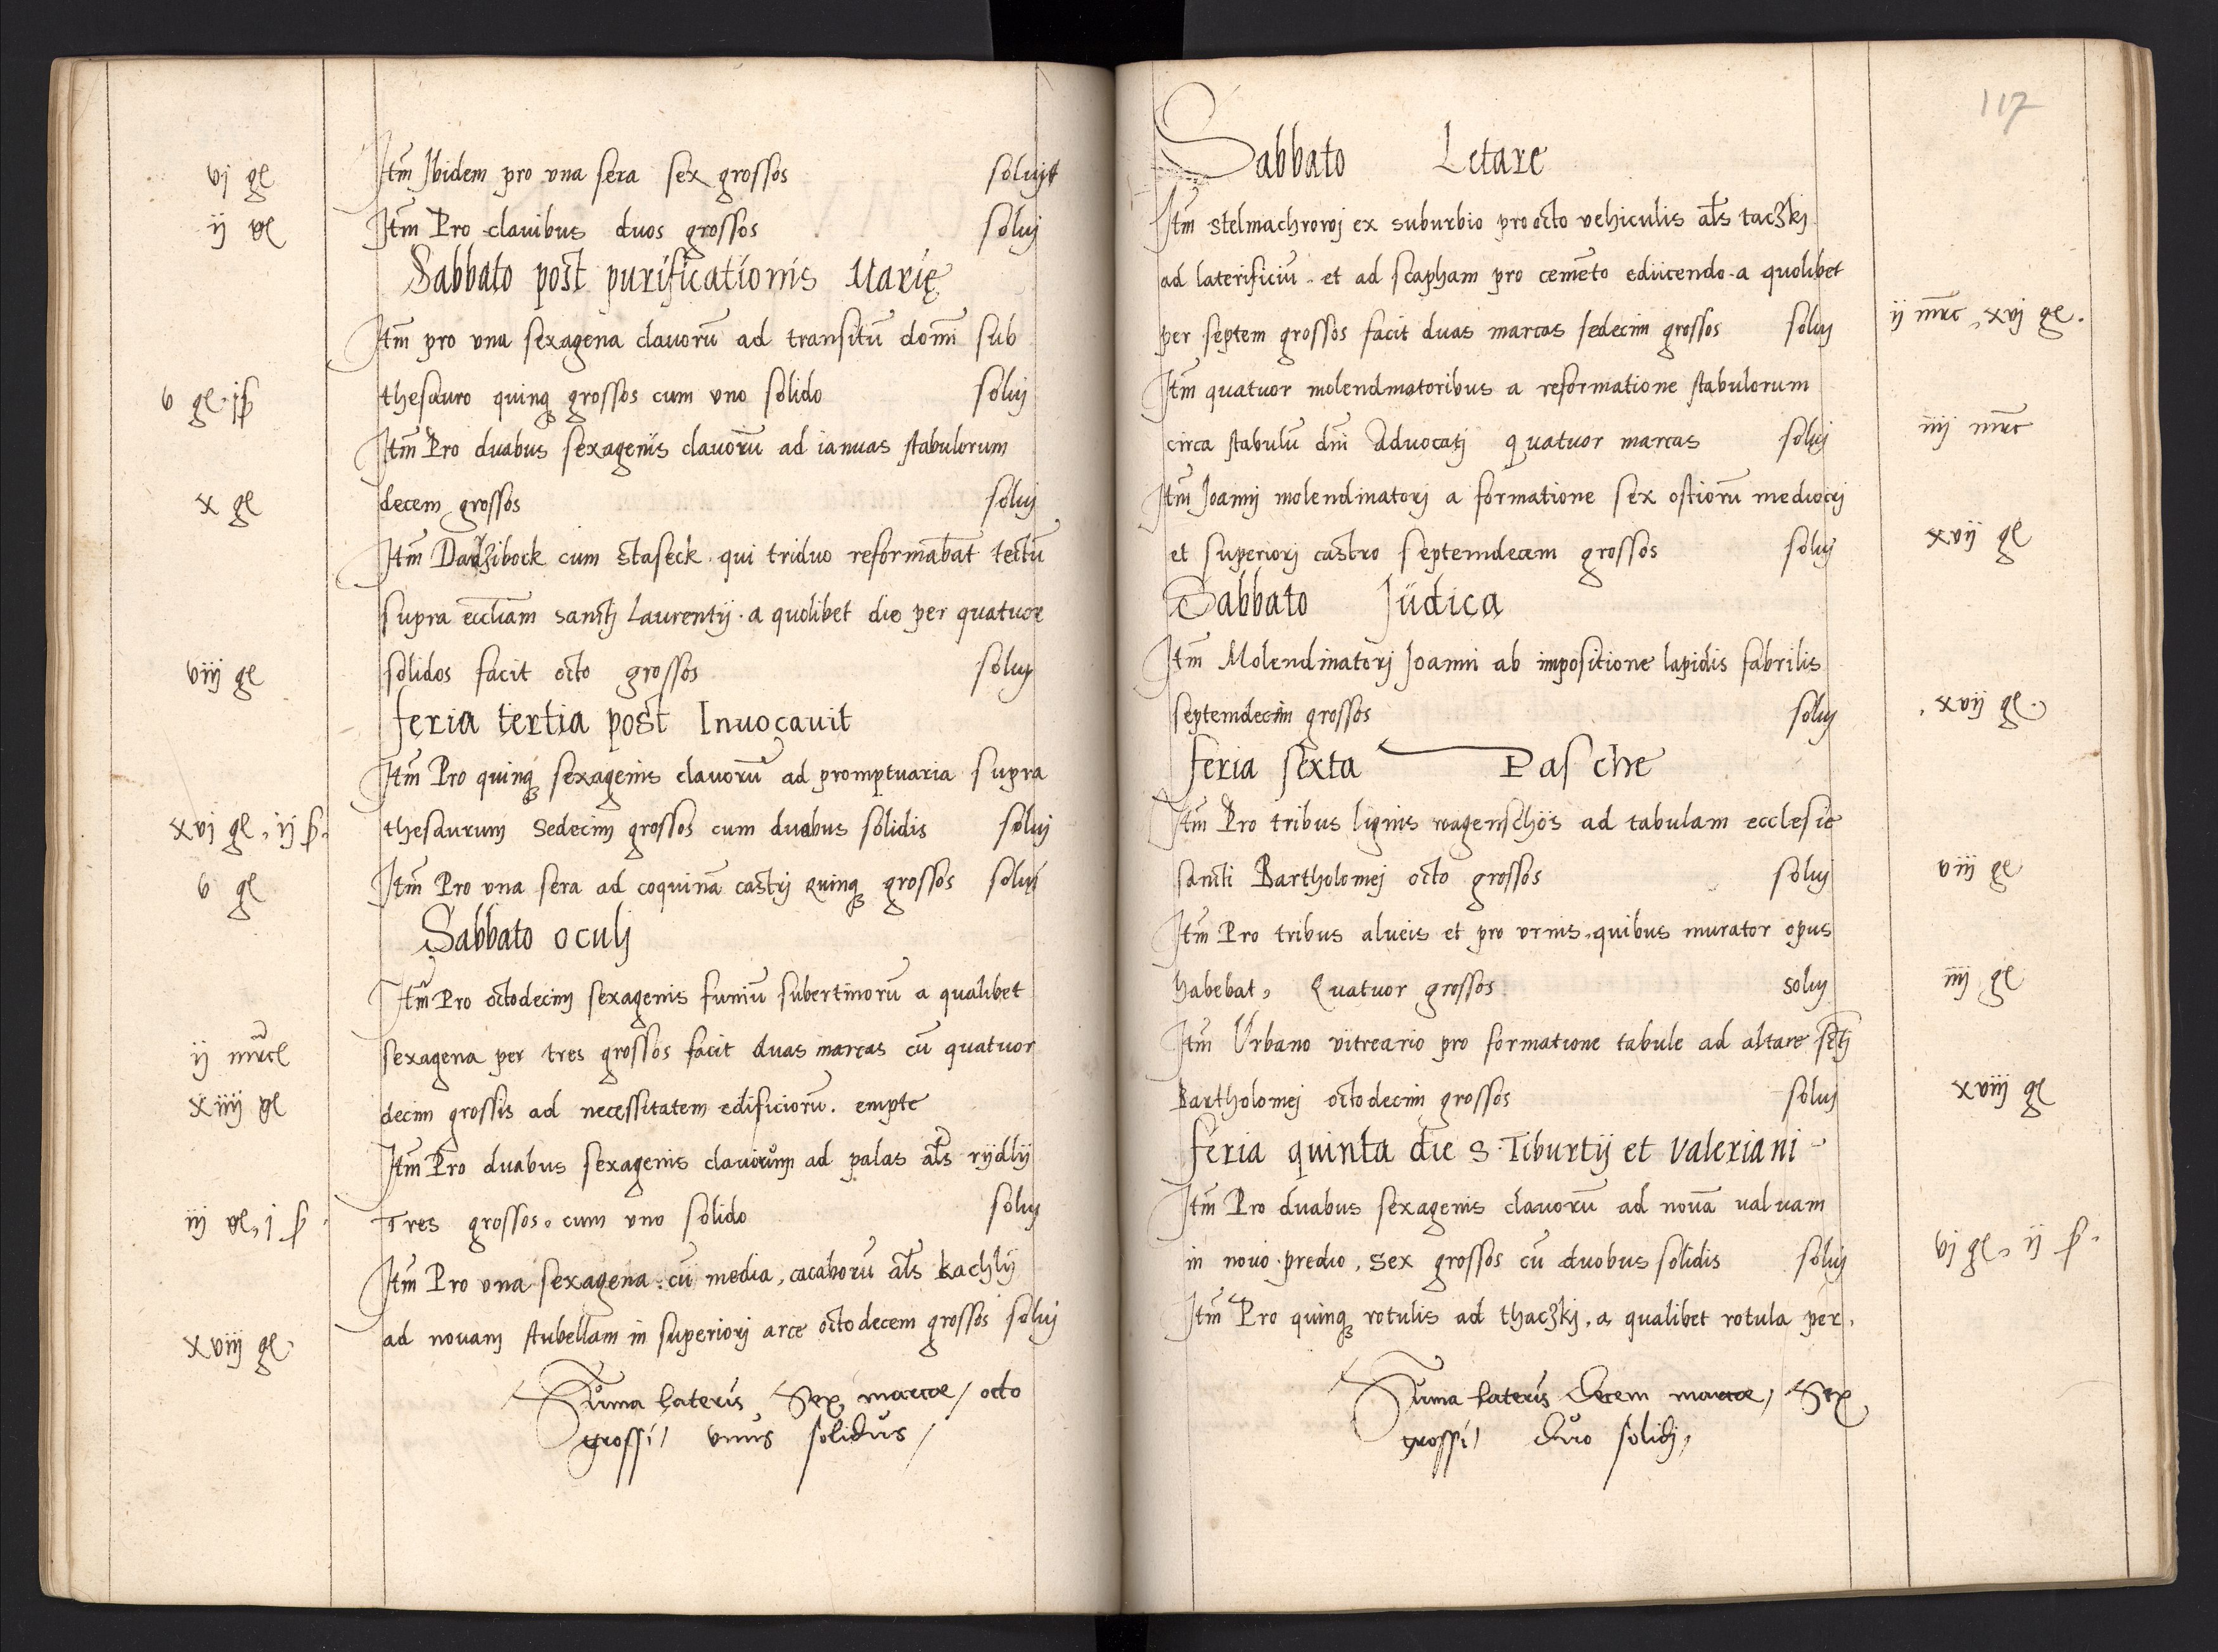 vj gl Itm̄ Ibidem pro vna sera sex grossos soluit
ij gl Itm̄ Pro clauibus duos grossos soluj
Sabbato post purificationis Marię
Itm̄ pro vna sexagena clauorū ad transitū domī sub
v gl j ꝭ thesauro quinqꝫ grossos cum vno solido soluj
Itm̄ Pro duabus sexagenis clauorū ad ianuas stabulorum
x gl decem grossos soluj
Itm̄ cum Staseck qui triduo reformabāt tectū
supra eccliam sanctj Laurentij. a quolibet die per quatuor
viij gl solidos facit octo grossos soluj
feria tertia post Inuocauit
Itm̄ Pro quinqꝫ sexagenis clauorū ad promptuaria supra
xvj gl, ij ꝭ. thesaurum Sedecim grossos cum duobus solidis soluj
v gl Itm̄ Pro vna sera ad coquinā castrj Quinqꝫ grossos soluj
Sabbato oculj
Itm̄ Pro octodecim sexagenis funiū subertinorū a qualibet
ij mrc̄ sexagena per tres grossos facit duas marcas cū quatuor
xiiij gl decim grossis ad necessitatem edificiorū. empte
Itm̄ Pro duabus sexagenis clauorum ad palas al̄s rydlÿ
iij gl, j ꝭ. Tres grossos. cum vno solido soluj
Itm̄ Pro vna sexagena cū media, cacaborū al̄s kachlÿ
xviij gl. ad nouam stubellam in superiorj arce octodecem grossos soluj
Suma Lateris Sex marcæ / octo
grossi / vnus solidus /
117
Sabbato Letare
Itm̄ Stelmachrowj ex suburbio pro octo vehiculis al̄s taczkj
ad laterificiū. et ad scapham pro cemēto educendo. a quolibet
per septem grossos facit duas marcas sedecim grossos soluj ij mrc̄, xvj gl.
Itm̄ quatuor molendinatoribus a reformatione stabulorum
circa stabulū dnī Aduocatj quatuor marcas soluj iiij mrc̄
Itm̄ Joannj molendinatorj a formatione sex ostiorū mediocrj
et superiorj castro septemdecim grossos soluj xvij gl
Sabbato Judica
Itm̄ Molendinatorj Joanni ab impositione lapidis fabrilis
septemdecim grossos soluj xvij gl.
feria sexta Pasche
Itm̄ Pro tribus lignis wagenschös ad tabulam ecclesie
sancti Bartholomej octo grossos soluj viij gl
Itm̄ Pro tribus alueis et pro vrnis, quibus murator opus
habebat, Quatuor grossos soluj iiij gl
Itm̄ Vrbano vitreario pro formatione tabule ad altare sctj
Bartholomej octodecim grossos soluj xviij gl
feria quinta die S. Tiburtij et Valeriani
Itm̄ Pro duabus sexagenis clauorū ad nouā valuam
in nouo predio, Sex grossos cū duobus solidis soluj vj gl, ij ꝭ.
Itm̄ Pro quinqꝫ rotulis ad thaczkj, a qualibet rotula per
Suma Lateris Decem marcæ / Sex
grossi / Duo solidj,